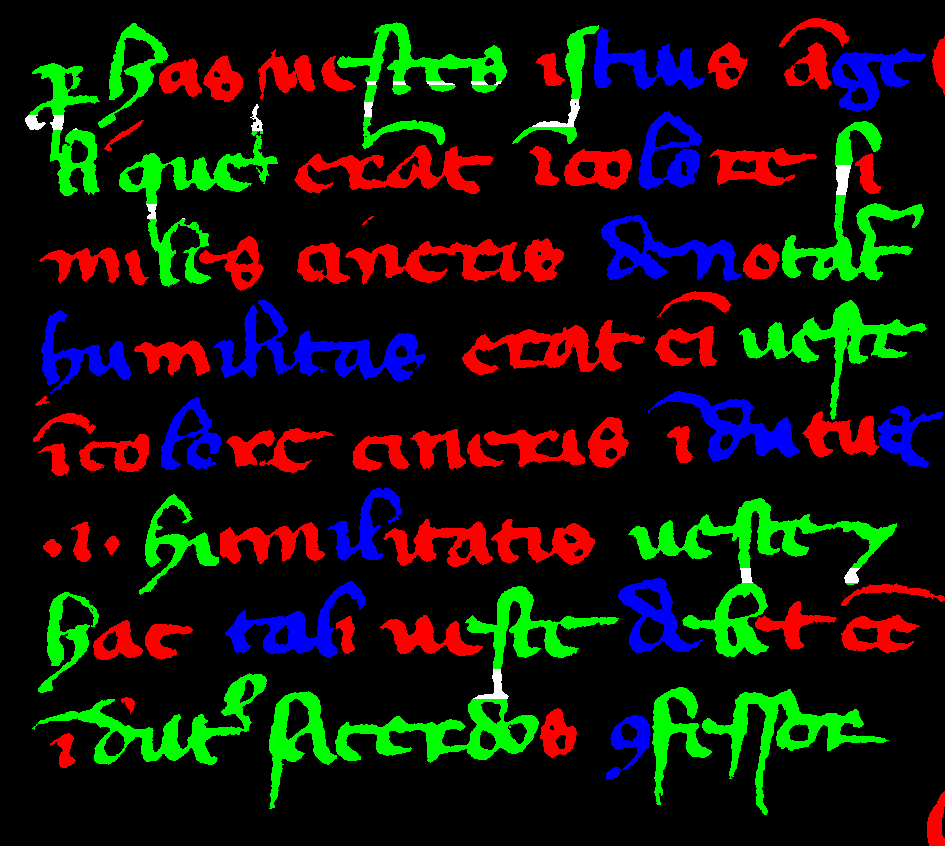 ꝑ has uestes istius āge
li que erāt ī colore si
miles cineris & notat̄
humilitas erat ei̅ ueste
ī colore cineris īdutus
.i. humilitatis ueste ⁊
hac tali ueste debet ēē
īdut᷒ sacerdos ꝯfessor